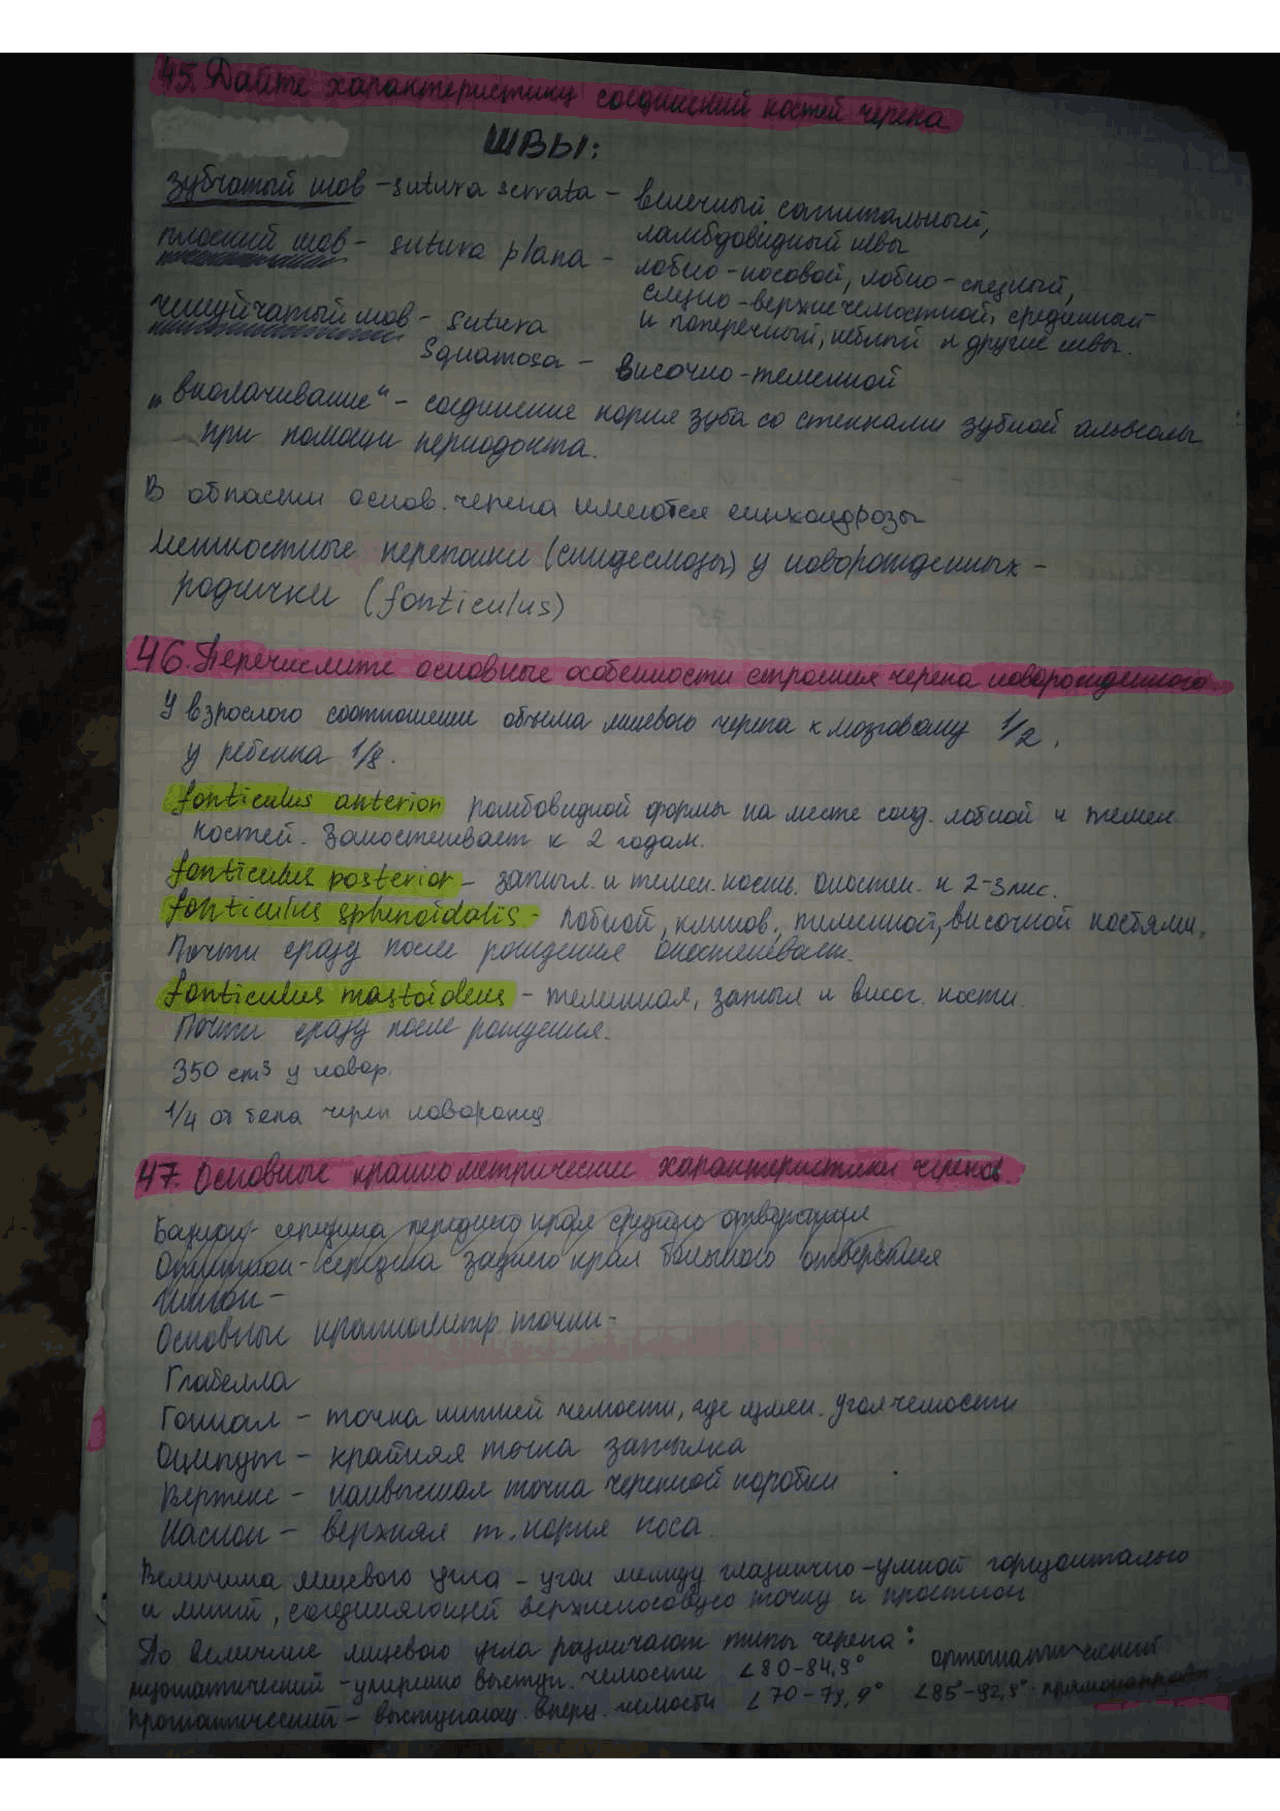 45. Дайте характеристику соединений костей черепа
ШВЫ:
зубчатый шов - sutura serrata - венечный сагитальный,
ламбдовидный швы
плоский шов - sutura plana - лобно-носовой, лобно-слезный,
слезно-верхнечелюстной, срединный
и поперечный, небный и другие швы.
чешуйчатый шов - sutura
squamosa - височно-теменной
„вколачивание" - соединение корня зуба со стенками зубной альвеолы
при помощи периодокта.
В области основ. черепа имеются синхондрозы
Межкостные перепонки (синдесмозы) у новорожденных -
роднички (fonticulus)
46. Перечислите основные особенности строения черепа новорожденного.
У взрослого соотношение объема лицевого черепа к мозговому 1/2,
у ребенка 1/8.
fonticulus anterior ромбовидной формы на месте соед. лобной и темен.
костей. Замостеневает к 2 годам.
fonticulus posterior - затыл. и темен. кость. Окостен. к 2-3 мес.
fonticulus sphenoidalis - лобной, клинов., теменной, височной костями.
Почти сразу после рождения окостеневает.
fonticulus mastoideus - теменная, затыл и височ. кости.
Почти сразу после рождения.
350 cm³ у новор.
1/4 от тела череп новорожд
47. Основные краниометрические характеристики черепов.
Базион - середина переднего края среднего отверстия
Опистион - середина заднего края большого отверстия
Инион -
Основные краниометр точки -
Глабелла
Гониал - точка нижней челюсти, где измен. угол челюсти
Оципут - крайняя точка затылка
Вертекс - наивысшая точка черепной коробки
Насион - верхняя т. корня носа.
Величина лицевого угла - угол между глазнично-ушной горизонталью
и линий, соединяющей верхненосовую точку и простион
По величине лицевого угла различают типы черепа:
ортогнатический
мезогнатический - умеренно выступ. челюсти ∠80-84,9°
∠85°-92,9°
прогнатический - выступающ. вперед. челюсти ∠70-79,9°